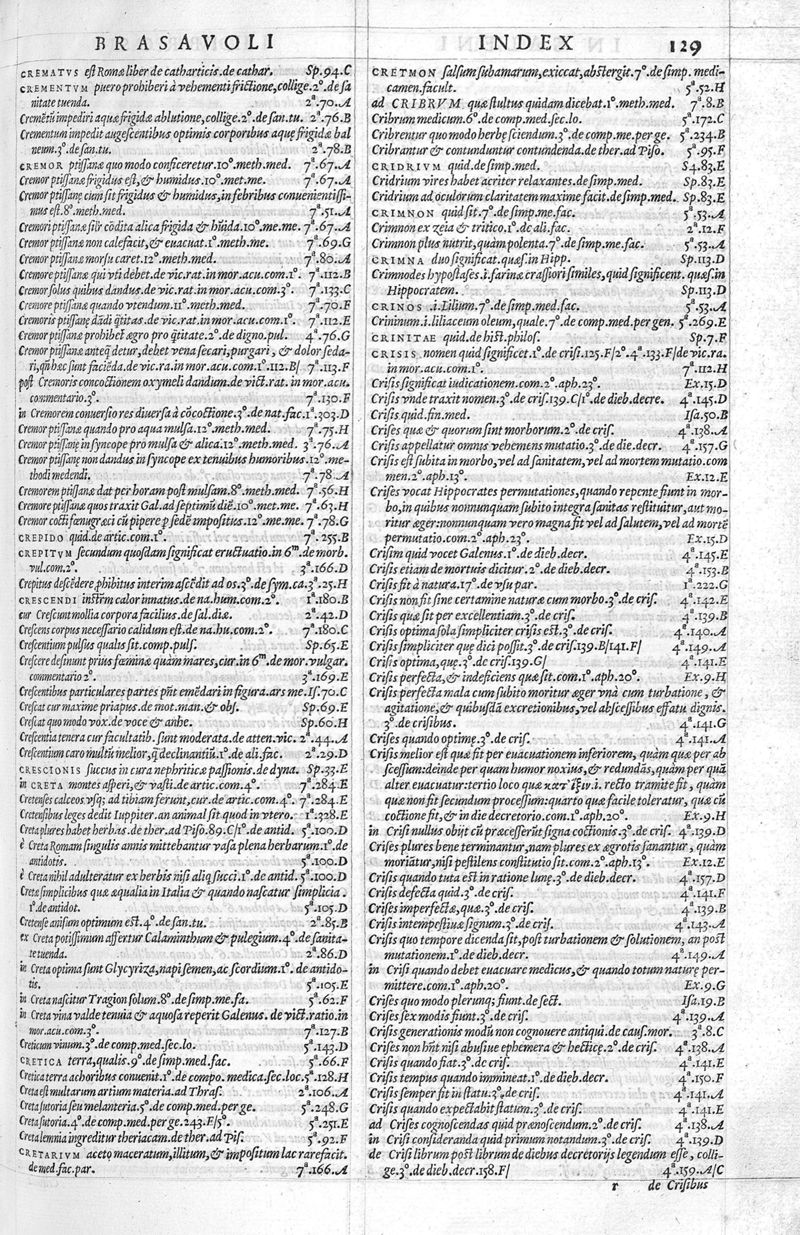 BRASAVOLI INDEX 129
CREMATVS est Romæ liber de catharticis.de cathar. Sp.94.C
CREMENTVM puero prohiberi à vehementi frictione,collige.2°.de sa
nitate tuenda. 2ª.70.A
Cremẽtũ impediri aquæ frigidæ ablutione,collige.2°.de san.tu. 2ª.76.B
Crementum impedit augescentibus optimis corporibus aquę frigidæ bal
neum.3°.de san.tu. 2ª.78.B
CREMOR ptissanæ quo modo conficeretur.10°.meth.med. 7ª.67.A
Cremor ptissanæ frigidus est,& humidus.10°.met.me. 7ª.67.A
Cremor ptissanę cum sit frigidus & humidus,in febribus conuenientissi-
mus est.8°.meth.med. 7ª.51.A
Cremori ptissanæ silr cõdita alica frigida & hũida.10°.me.me. 7ª.67.A
Cremor ptissanæ non calefacit,& euacuat.1°.meth.me. 7ª.69.G
Cremor ptissanæ morsu caret.12°.meth.med. 7ª.80.A
Cremore ptissanæ qui vti debet.de vic.rat.in mor.acu.com.1°. 7ª.112.B
Cremor solus quibus dandus.de vic.rat.in mor.acu.com.3°. 7ª.133.C
Cremore ptissanæ quando vtendum.11°.meth.med. 7ª.70.F
Cremoris ptissanę dãdi q̃titas.de vic.rat.in mor.acu.com.1°. 7ª.112.E
Cremor ptissanæ prohibet ægro pro q̃titate.2°.de digno.pul. 4ª.76.G
Cremor ptissanæ anteq̃ detur,debet vena secari,purgari, & dolor seda-
ri,q̃ñ hæc sunt faciẽda.de vic.ra.in mor.acu.com.1°.112.B/ 7ª.113.F
post Cremoris concoctionem oxymeli dandum.de vict.rat. in mor.acu.
commentario.3°. 7ª.130.F
in Cremorem conuersio res diuersa à cõcoctione.3°.de nat.fac. 1ª.303.D
Cremor ptissanæ quando pro aqua mulsa.12°.meth.med. 7ª.75.H
Cremor ptissanę in syncope pro mulsa & alica.12°.meth.med. 3ª.76.A
Cremor ptissanę non dandus in syncope ex tenuibus humoribus.12°.me-
thodi medendi. 7ª.78.A
Cremorem ptissanæ dat per horam post mulsam.8°.meth.med. 7ª.56.H
Cremore ptissanæ quos traxit Gal.ad septimũ diẽ.10°.met.me. 7ª.63.H
Cremor cocti fœnugræci cũ pipere p sedẽ impositus.12°.me.me. 7ª.78.G
CREPIDO quid.de artic.com.1°. 7ª.255.B
CREPITVM secundum quosdam significat eructuatio.in 6ᵐ.de morb.
vul.com.2°. 3ª.166.D
Crepitus descẽdere phibitus interim ascẽdit ad os.3°.de sym.ca. 3ª.25.H
CRESCENDI instrm̃ calor innatus.de na.hum.com.2°. 1ª.180.B
cur Crescunt mollia corpora facilius.de sal.diæ. 2ª.42.D
Crescens corpus necessario calidum est.de na.hu.com.2°. 7ª.180.C
Crescentium pulsus qualis sit.comp.puls. Sp.65.E
Crescere desinunt prius fœminæ quàm mares,cur.in 6ᵐ.de mor.vulgar.
commentario 2°. 3ª.169.E
Crescentibus particulares partes pñt emẽdari in figura.ars me.Is.70.C
Crescat cur maxime priapus.de mot.man.& obs. Sp.69.E
Crescat quo modo vox.de voce & anhe. Sp.60.H
Crescentia tenera cur facultatib. sunt moderata.de atten.vic. 2ª.44.A
Crescentium caro multũ melior,q̃ declinantiũ.1°.de ali.fac. 2ª.29.D
CRESCIONIS succus in cura nephriticæ passionis.de dyna. Sp.33.E
in CRETA montes asperi,& vasti.de artic.com.4°. 7ª.284.E
Cretenses calceos vsq; ad tibiam ferunt,cur.de artic.com.4°. 7ª.284.E
Cretensibus leges dedit Iuppiter.an animal sit quod in vtero. 1ª.328.E
Creta plures habet herbas.de ther.ad Piso.89.C/1°.de antid. 5ª.100.D
è Creta Romam singulis annis mittebantur vasa plena herbarum.1°.de
antidotis. 5ª.100.D
è Creta nihil adulteratur ex herbis nisi aliq succi.1°.de antid. 5ª.100.D
Creta simplicibus quæ æqualia in Italia & quando nascatur simplicia.
1°.de antidot. 5ª.105.D
Cretense anisum optimum est.4°.de san.tu. 2ª.85.B
ex Creta potissimum assertur Calaminthum & pulegium.4°.de sanita-
te tuenda. 2ª.86.D
in Creta optima sunt Glycyriza,napi semen,ac scordium.1°.de antido-
tis. 5ª.105.E
in Creta nascitur Tragion solum.8°.de simp.me.fa. 5ª.62.F
in Creta vina valde tenuia & aquosa reperit Galenus. de vict.ratio.in
mor.acu.com.3°. 7ª.127.B
Creticum vinum.3°.de comp.med.sec.lo. 5ª.143.D
CRETICA terra,qualis.9°.de simp.med.fac. 5ª.66.F
Cretica terra achoribus conuenit.1°.de compo.medica.sec.loc. 5ª.128.H
Creta est multarum artium materia.ad Thras. 2ª.106.A
Creta sutoria seu melanteria.5°.de comp.med.per ge. 5ª.248.G
Creta sutoria.4°.de comp.med.per ge.243.F/5°. 5ª.251.E
Creta lemnia ingreditur theriacam.de ther.ad Pis. 5ª.92.F
CRETARIVM aceto maceratum,illitum,& impositum lac rarefacit.
de med.fac.par. 7ª.166.A
CRETMON salsum subamarum,exiccat,abstergit.7°.de simp. medi-
camen.facult. 5ª.52.H
ad CRIBRVM quæ stultus quidam dicebat.1°.meth.med. 7ª.8.B
Cribrum medicum.6°.de comp.med.sec.lo. 5ª.172.C
Cribrentur quo modo herbę sciendum.3°.de comp.me.per ge. 5ª.234.B
Cribrantur & contunduntur contundenda.de ther.ad Piso. 5ª.95.F
CRIDRIVM quid.de simp.med. S4.83.E
Cridrium vires habet acriter relaxantes.de simp.med. Sp.83.E
Cridrium ad oculorum claritatem maxime facit.de simp.med. Sp.83.E
CRIMNON quid sit.7°.de simp.me.fac. 5ª.53.A
Crimnon ex zeia & tritico.1°.de ali.fac. 2ª.12.F
Crimnon plus nutrit,quàm polenta.7°.de simp.me.fac. 5ª.53.A
CRIMNA duo significat.quæs.in Hipp. Sp.113.D
Crimnodes hypostases .i.farinæ crassiori similes,quid significent. quæs.in
Hippocratem. Sp.113.D
CRINOS .i.Lilium.7°.de simp.med.fac. 5ª.53.A
Crininum.i.liliaceum oleum,quale.7°.de comp.med.per gen. 5ª.269.E
CRINITAE quid.de hist.philos. Sp.7.F
CRISIS nomen quid significet.1°.de crisi.125.F/2°.4ª.133.F/de vic.ra.
in mor.acu.com.1°. 7ª.112.H
Crisis significat iudicationem.com.2°.aph.23°. Ex.15.D
Crisis vnde traxit nomen.3°.de cris.139.C/1°.de dieb.decre. 4ª.145.D
Crisis quid.fin.med. Isa.50.B
Crises quæ & quorum sint morborum.2°.de cris. 4ª.138.A
Crisis appellatur omnis vehemens mutatio.3°.de die.decr. 4ª.157.G
Crisis est subita in morbo,vel ad sanitatem,vel ad mortem mutatio.com
men.2°.aph.13°. Ex.12.E
Crises vocat Hippocrates permutationes,quando repente fiunt in mor-
bo,in quibus nonnunquam subito integra sanitas restituitur,aut mo-
ritur æger:nonnunquam vero magna fit vel ad salutem,vel ad mortẽ
permutatio.com.2°.aph.23°. Ex.15.D
Crisim quid vocet Galenus.1°.de dieb.decr. 4ª.145.E
Crisis etiam de mortuis dicitur.2°.de dieb.decr. 4ª.153.B
Crisis fit à natura.17°.de vsu par. 1ª.222.G
Crisis non fit sine certamine naturæ cum morbo.3°.de cris. 4ª.142.E
Crisis quæ fit per excellentiam.3°.de cris. 4ª.139.B
Crisis optima sola simpliciter crisis est.3°.de cris. 4ª.140.A
Crisis simpliciter quę dici possit.3°.de cris.139.B/141.F/ 4ª.149.A
Crisis optima,quę.3°.de cris.139.G/ 4ª.141.E
Crisis perfecta,& indeficiens quæ sit.com.1°.aph.20°. Ex.9.H
Crisis perfecta mala cum subito moritur æger vnà cum turbatione , &
agitatione,& quibusdã excretionibus,vel abscessibus effatu dignis.
3°.de crisibus. 4ª.141.G
Crises quando optimę.3°.de cris. 4ª.141.A
Crisis melior est quæ fit per euacuationem inferiorem, quàm quæ per ab
scessum:deinde per quam humor noxius,& redundãs,quàm per quã
alter euacuatur:tertio loco quæ κατ' ἴξιν.i. recto tramite fit , quàm
quæ non fit secundum processum:quarto quæ facile toleratur, quæ cũ
coctione fit,& in die decretorio.com.1°.aph.20°. Ex.9.H
in Crisi nullus obijt cũ præcesserũt signa coctionis.3°.de cris. 4ª.139.D
Crises plures bene terminantur,nam plures ex ægrotis sanantur , quàm
moriãtur,nisi pestilens constitutio sit.com.2°.aph.13°. Ex.12.E
Crisis quando tuta est in ratione lunę.3°.de dieb.decr. 4ª.157.D
Crisis defecta quid.3°.de cris. 4ª.141.F
Crises imperfectæ,quæ.3°.de cris. 4ª.139.B
Crisis intempestiuæ signum.3°.de cris. 4ª.143.A
Crisis quo tempore dicenda sit,post turbationem & solutionem, an post
mutationem.1°.de dieb.decr. 4ª.149.A
in Crisi quando debet euacuare medicus,& quando totum naturę per-
mittere.com.1°.aph.20°. Ex.9.G
Crises quo modo plerunq; fiunt.de sect. Isa.19.B
Crises sex modis fiunt.3°.de cris. 4ª.139.A
Crisis generationis modũ non cognouere antiqui.de caus.mor. 3ª.8.C
Crises nõn hñt nisi abusiue ephemera & hecticę.2°.de cris. 4ª.138.A
Crisis quando fiat.3°.de cris. 4ª.141.E
Crisis tempus quando immineat.1°.de dieb.decr. 4ª.150.F
Crisis semper fit in statu.3°,de cris. 4ª.141.A
Crisis quando expectabit statum.3°.de cris. 4ª.141.E
ad Crises cognoscendas quid prænoscendum.2°.de cris. 4ª.138.A
in Crisi consideranda quid primum notandum.3°.de cris. 4ª.139.D
de Crisi librum post librum de diebus decretorijs legendum esse, colli-
ge.3°.de dieb.decr.158.F/ 4ª.159.A/C
r de Crisibus